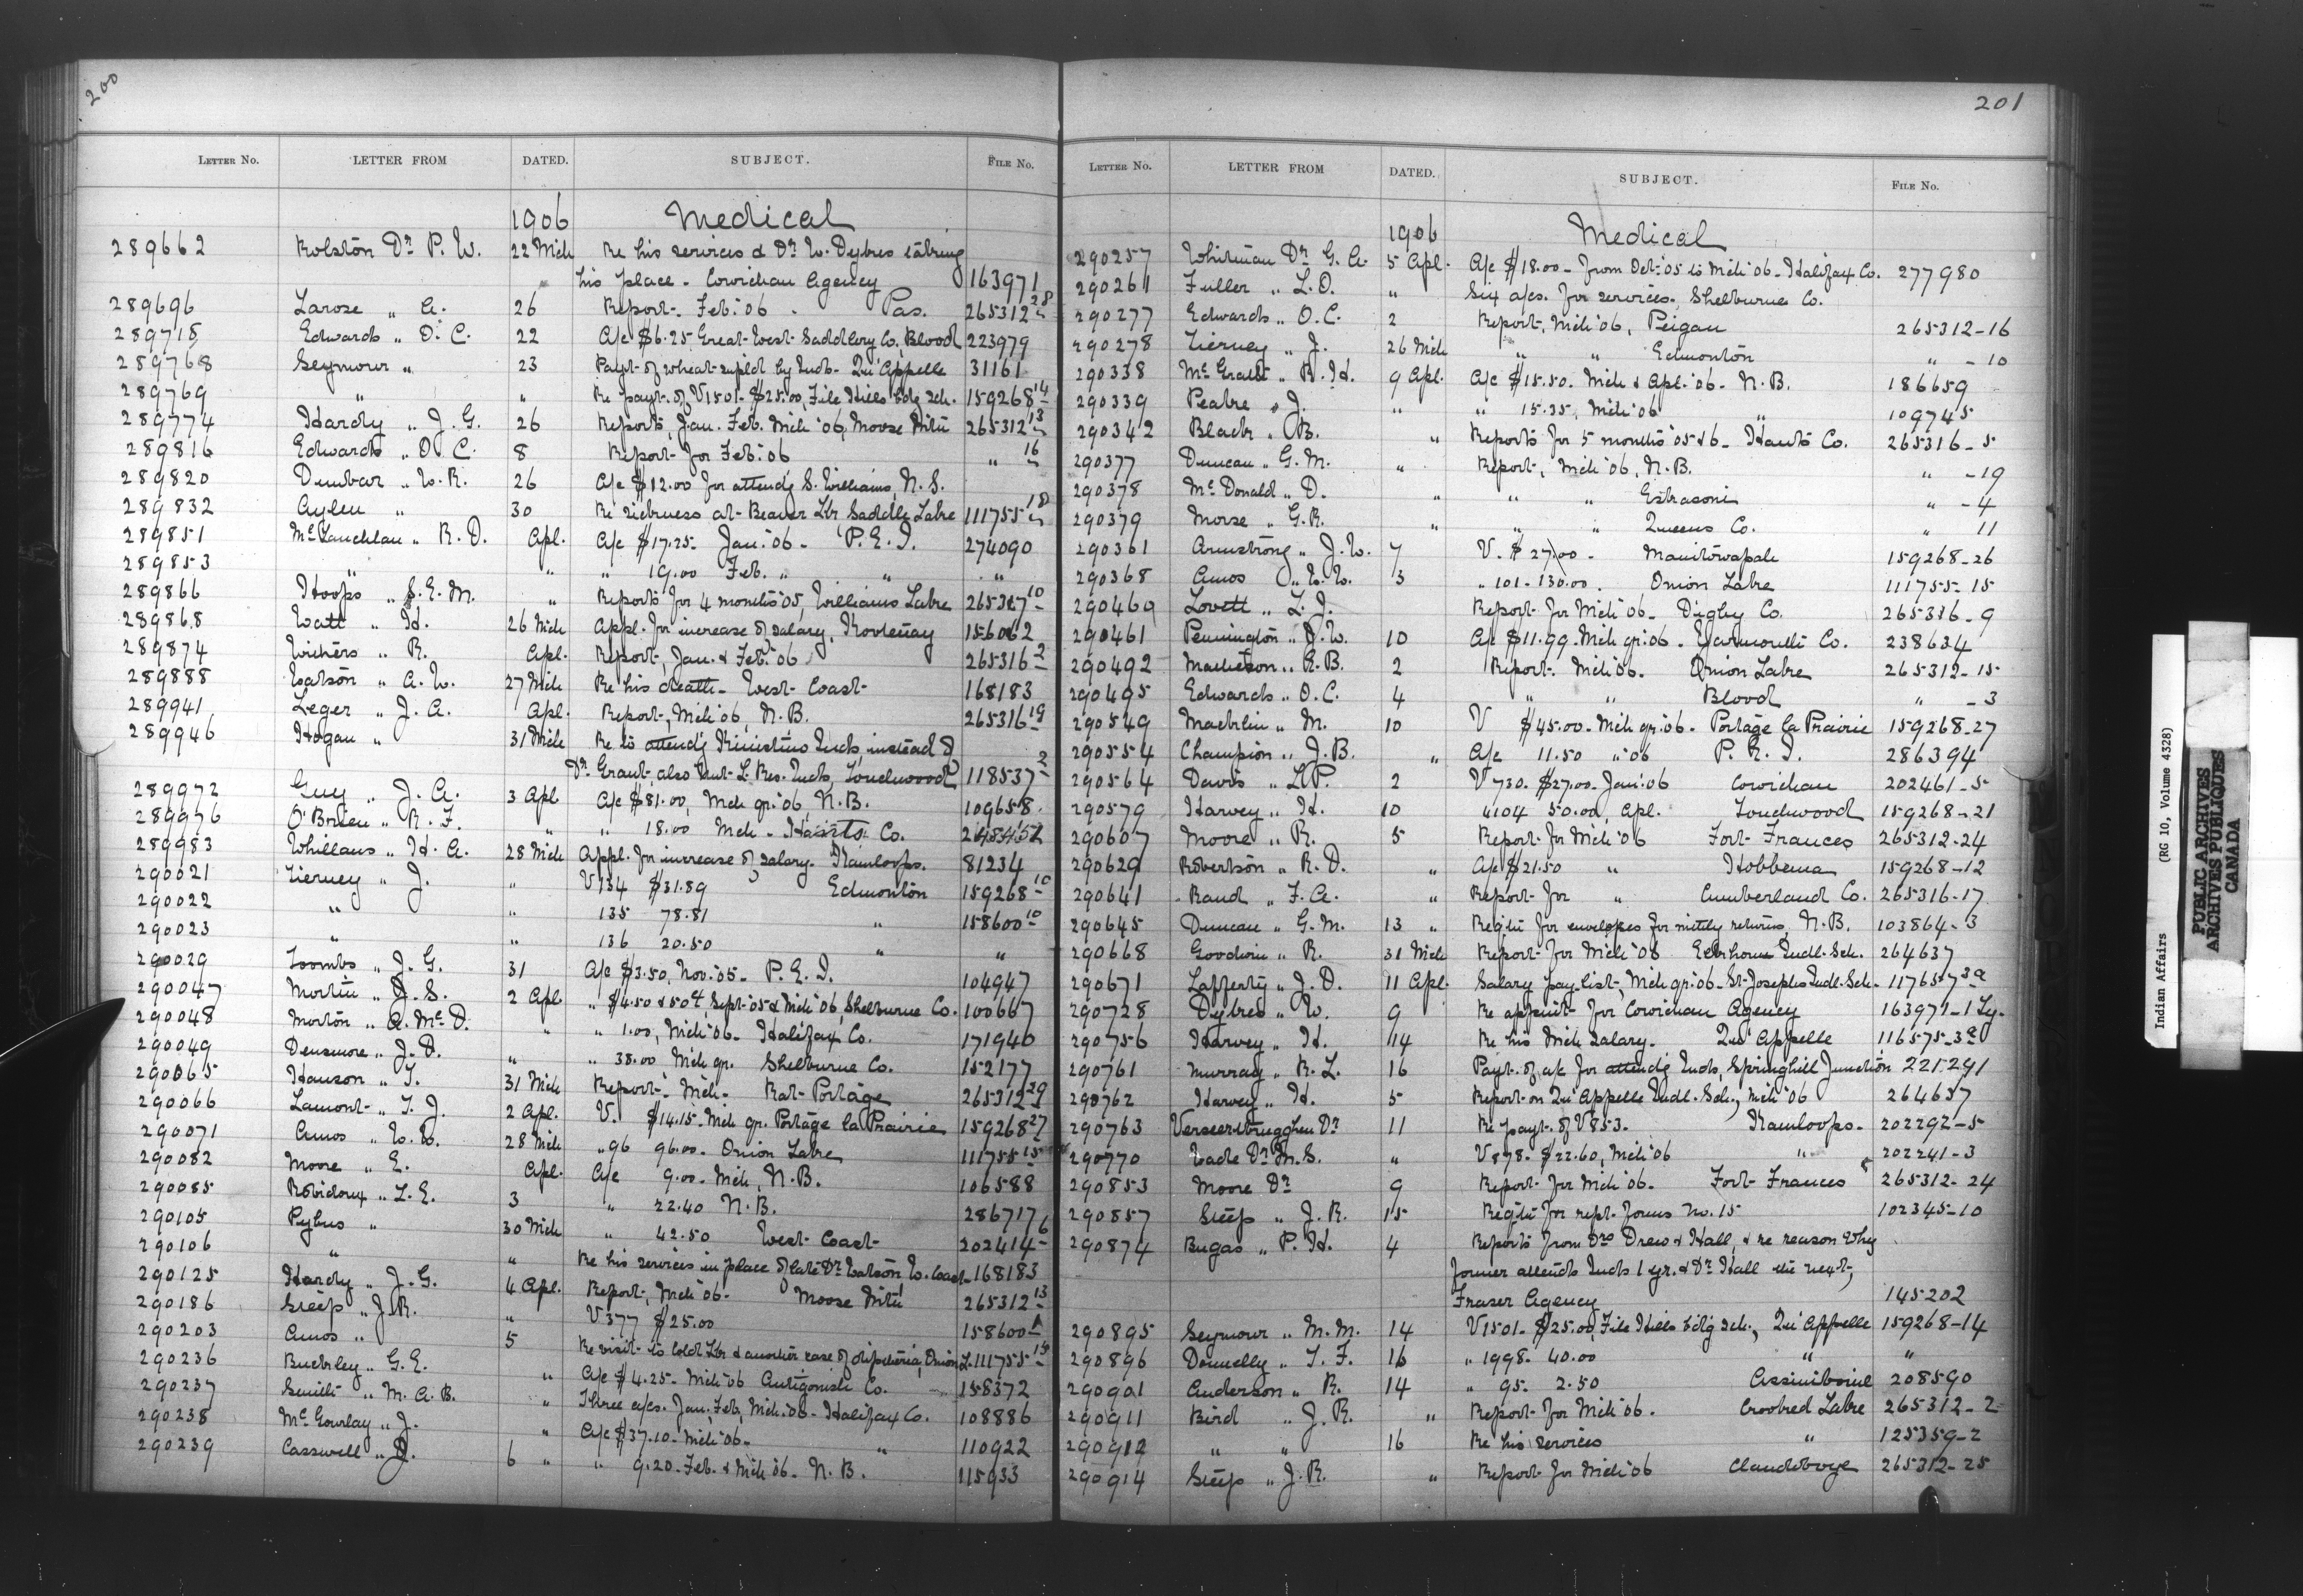 200
LETTER NO. LETTER FROM DATED. SUBJECT. FILE NO.
1906 Medical
289662 Rolston Dr P. W. 22 Mch Re his services & Dr W. Dykes taking
his place - Cowichan Agency 163971
289696 Larose " A. 26 Report - Feb. '06 - Pas. 265312 28
289718 Edwards " O. C. 22 A/c $6.25 Great West Saddlery Co., Blood 223979
289768 Seymour " 23 Payt. of wheat supld by Inds. Qu'Appelle 31161
289769 " " Re payt. of V1501 - $25.00, File Hills Bdg Sch. 159268 14
289774 Hardy " J. G. 26 Reports, Jan. Feb. Mch '06, Moose Mtn 265312 13
289816 Edwards " O. C. 8 Report for Feb. '06 " 16
289820 Dunbar " W. R. 26 A/c $12.00 for attendg S. Williams, N. S.
289832 Aylen " 30 Re sickness at Beaver Lk. Saddle Lake 111755 18
289851 McLauchlan " R. D. Apl. A/c $17.25 - Jan. '06 - P. E. I. 274090
289853 " " " 19.00 Feb. " " "
289866 Hoops " S. E. M. " Reports for 4 months '05, Williams Lake 265317 10
289868 Watt " H. 26 Mch Appl. for increase of salary, Kootenay 156062
289874 Withers " R. Apl. Report, Jan. & Feb. '06 265316 2
289888 Watson " A. W. 27 Mch Re his death - West Coast 168183
289941 Leger " J. A. Apl. Report, Mch '06, N. B. 265316 19
289946 Hogan " 31 Mch Re to attendg Kinistino Inds, instead of
Dr Grant, also Nut L. Res. Inds, Touchwood 118537 2
289972 Guy " J. A. 3 Apl A/c $81.00, Mch qr. '06, N. B. 109658
289976 O'Brien " R. F. " " 18.00 Mch - Hants Co.
289983 Whillans " H. A. 28 Mch Appl. for increase of salary. Kamloops. 81234
290021 Tierney " J. " V134 $31.89 Edmonton 159268 10
290022 " " 135 78.81 " 158600 10
290023 " " 136 20.50 " "
290029 Toombs " J. G. 31 A/c $3.50, Nov. '05 - P. E. I. 104947
290047 Mortin " J. S. 2 Apl " $4.50 & 50¢, Sept '05 & Mch '06, Shelburne Co. 100667
290048 Morton " A. McD. " " 1.00, Mch '06 - Halifax Co. 171940
290049 Densmore " J. D. " " 38.00 Mch qr. Shelburne Co. 152177
290065 Hanson " T. 31 Mch Report - Mch - Rat Portage 265312 29
290066 Lamont " T. J. 2 Apl. V. $14.15 - Mch qr. Portage la Prairie 159268 27
290071 Amos " W. W. 28 Mch " 96 96.00 - Onion Lake 111755 15
290082 Moore " E. Apl. A/c 9.00 - Mch, N. B. 106588
290085 Robidoux " L. E. 3 " 22.40 N. B. 286717
290105 Pybus " 30 Mch " 42.50 West Coast 202414 6
290106 " " Re his services in place of late Dr Watson W. Coast 168183
290125 Hardy " J. G. 4 Apl. Report, Mch '06 - Moose Mtn 265312 13
290186 Steep " J. R. " V377 $25.00 158600 A
290203 Amos " 5 Re visit to Cold Lk. & another case of diphtheria, Onion L. 111755 15
290236 Buckley " G. E. " A/c $4.25 - Mch '06 Antigonish Co. 158372
290237 Smith " M. A. B. " Three a/cs. Jan., Feb., Mch. '06 - Halifax Co. 108886
290238 McGourlay " J. " A/c $37.10 - Mch '06 - " 110922
290239 Casswell " D. 6 " " 9.20 - Feb. & Mch '06 - N. B. 115933
201
LETTER NO. LETTER FROM DATED. SUBJECT. FILE NO.
1906 Medical
290257 Whitman Dr G. A. 5 Apl. A/c $18.00 - from Oct. '05 to Mch '06 - Halifax Co. 277980
290261 Fuller " L. O. " Six a/cs. for services. Shelburne Co.
290277 Edwards " O. C. 2 Report, Mch '06, Peigan 265312-16
290278 Tierney " J. 26 Mch " " Edmonton " -10
290338 McGrath " R. H. 9 Apl. A/c $15.50 - Mch & Apl. '06 - N. B. 186659
290339 Peake " J. " " 15.35, Mch '06 " 109745
290342 Black " B. " Reports for 5 months '05 & 6 - Hants Co. 265316-5
290377 Duncan " G. M. " Report, Mch '06, N. B. " -19
290378 McDonald " D. " " " Eskasoni " -4
290379 Morse " G. R. " " " Queens Co. " 11
290361 Armstrong " J. W. 7 V. $27.00 - Manitowapah 159268-26
290368 Amos " W. W. 3 " 101 - 130.00. Onion Lake 111755-15
290460 Lovett " L. J. Report for Mch '06 - Digby Co. 265316-9
290461 Pennington " J. W. 10 A/c $11.99 - Mch qr. '06 - Yarmouth Co. 238634
290492 Matheson " E. B. 2 Report. Mch '06. Onion Lake 265312-15
290495 Edwards " O. C. 4 " " Blood " -3
290549 Macklin " M. 10 V $45.00 - Mch qr. '06 - Portage la Prairie 159268-27
290554 Champion " J. B. " A/c 11.50 " '06 P. E. I. 286394
290564 Davis " L. P. 2 V730. $27.00 - Jan. '06 Cowichan 202461-5
290579 Harvey " H. 10 " 104 50.00, Apl. Touchwood 159268-21
290607 Moore " R. 5 Report for Mch '06 Fort Frances 265312-24
290629 Robertson " R. D. " A/c $21.50 " Hobbema 159268-12
290641 Rand " F. A. " Report for " Cumberland Co. 265316-17
290645 Duncan " G. M. 13 " Reqtn for envelopes for mthly returns, N. B. 103864-3
290668 Goodwin " R. 31 Mch Report for Mch '06 Elkhorn Indl. Sch. 264637
290671 Lafferty " J. D. 11 Apl. Salary pay list, Mch qr. '06 - St. Josephs Indl. Sch. 117657-3a
290728 Dykes " W. 9 Re appmt for Cowichan Agency 163971-1
290756 Harvey " H. 14 Re his Mch salary. Qu'Appelle 116575-3a
290761 Murray " R. L. 16 Payt. of a/c for attendg Inds, Springhill Junction 221291
290762 Harvey " H. 5 Report on Qu'Appelle Indl. Sch., Mch '06 264637
290763 Verseerbrugghen Dr 11 Re payt. of V853. Kamloops. 202292-5
290770 Wade Dr M. S. " V878 - $22.60, Mch '06 " 202241-3
290853 Moore Dr 9 Report for Mch '06. Fort Frances 265312-24
290857 Steep " J. R. 15 Reqtn for rept. forms No. 15 102345-10
290874 Bugas " P. H. 4 Reports from Drs Drew & Hall, & re reason why
former attends Inds 1 yr. & Dr Hall the next,
Fraser Agency 145202
290895 Seymour " M. M. 14 V1501 - $25.00, File Hills bdg sch., Qu'Appelle 159268-14
290896 Donnelly " T. F. 16 " 1998 - 40.00 " "
290901 Anderson " R. 14 " 95 - 2.50 Assiniboine 208590
290911 Bird " J. R. " Report for Mch '06. Crooked Lake 265312-2
290912 " " 16 Re his services " 125359-2
290914 Steep " J. R. " Report for Mch '06 Clandeboye 265312-25
Indian Affairs (RG 10, Volume 4328)
PUBLIC ARCHIVES
ARCHIVES PUBLIQUES
CANADA